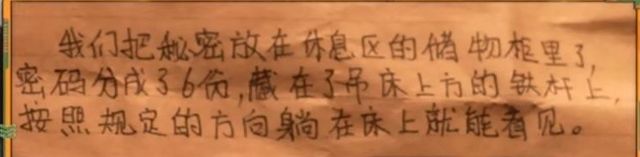 我们把秘密放在休息区的储物柜里了,
密码分成了6份,藏在了吊床上方的铁杆上,
按照规定的方向躺在床上就能看见。